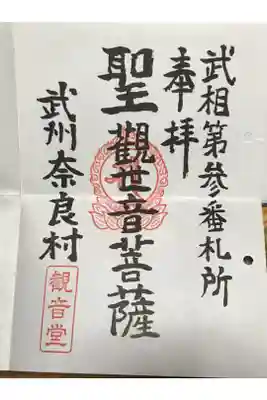 武相第參番札所
奉拝
聖觀世音菩薩
武州奈良村
觀音堂